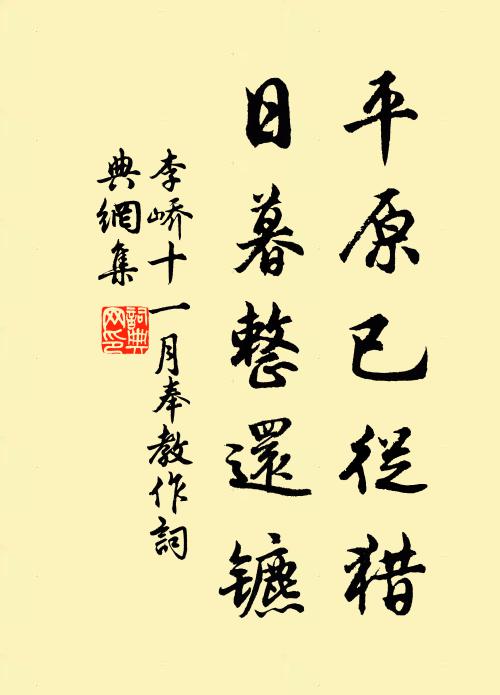 平原已從猎
日暮整還镳
李嶠十一月奉教作詞
典網集
詞典网印